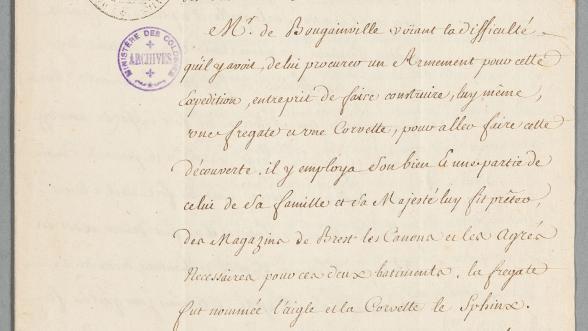 MINISTÈRE DES COLONIES
ARCHIVES
Mr. de Bougainville voïant la difficulté
qu'il y avoit, de lui procurer un Armement pour cette
Expedition, entreprit de faire construire, luy même,
une fregate et une Corvette, pour aller faire cette
découverte. il y employa son bien & une partie de
celui de sa famille et sa Majesté luy fit prêter,
des Magazins de Brest les Canons et les Agrés
Necessaires pour ces deux batiments. la fregate
fut nommée l'aigle et la Corvette le Sphinx.